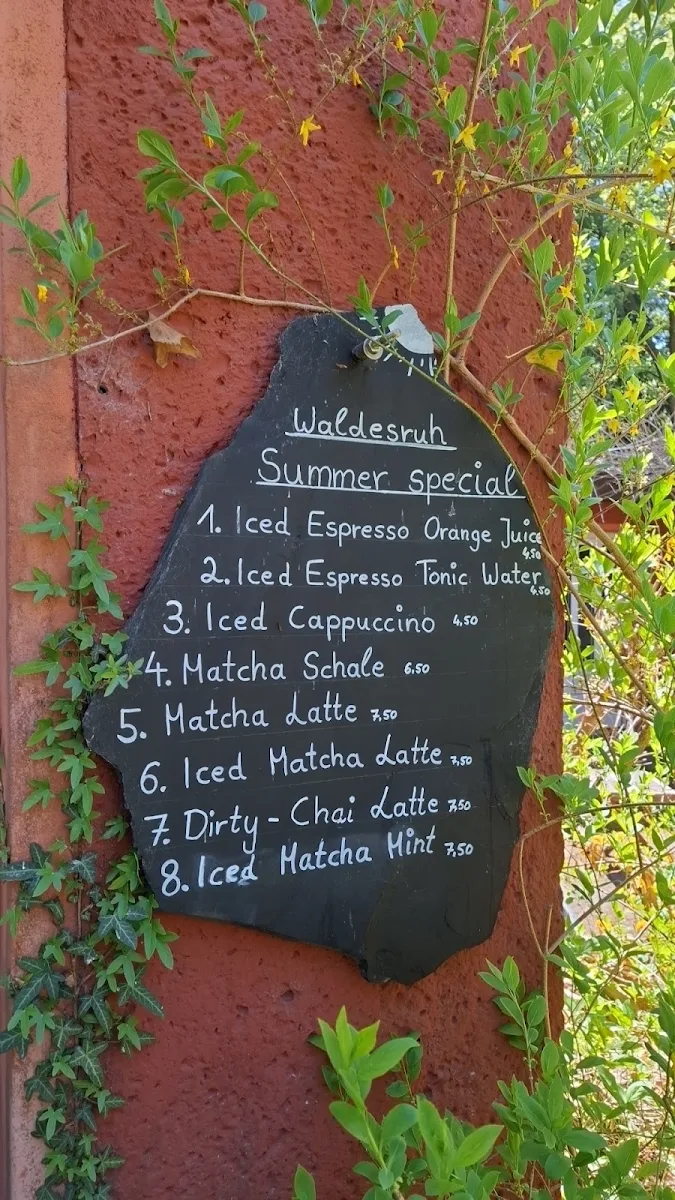 Waldesruh
Summer special
1. Iced Espresso Orange Juice
4,50
2. Iced Espresso Tonic Water
4,50
3. Iced Cappuccino 4,50
4. Matcha Schale 6,50
5. Matcha Latte 7,50
6. Iced Matcha Latte 7,50
7. Dirty-Chai Latte 7,50
8. Iced Matcha Mint 7,50